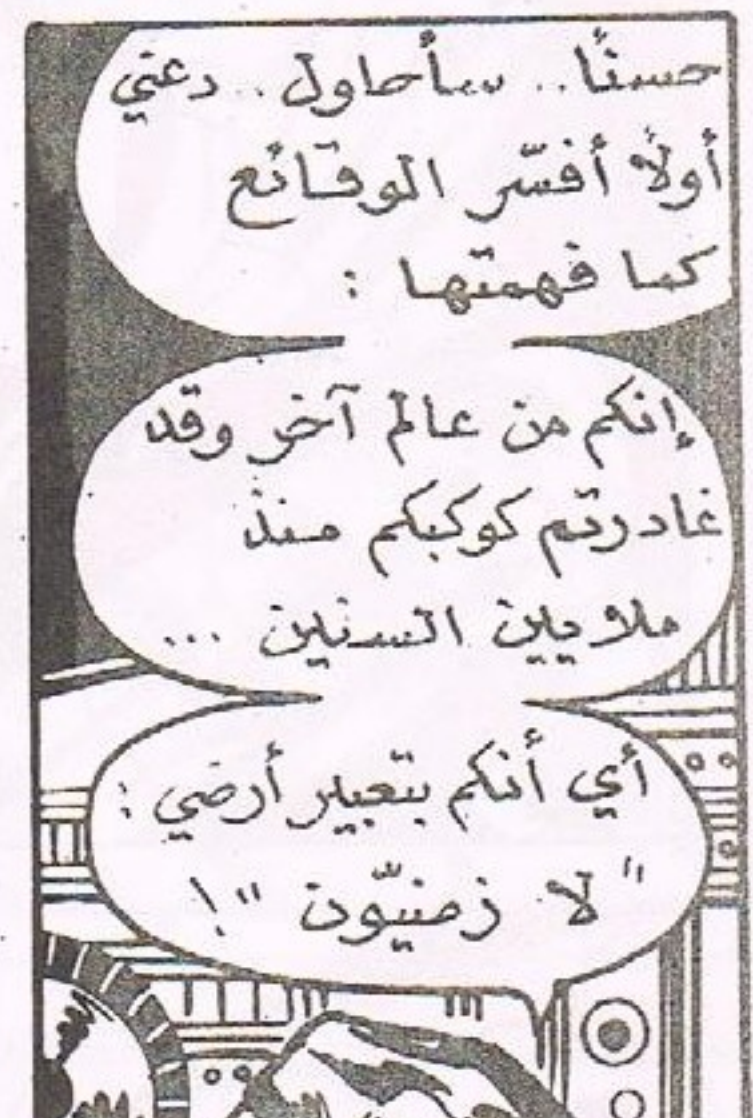 حسنًا.. سأحاول.. دعني
أولًا أفسّر الوقائع
كما فهمتها :
إنكم من عالم آخر وقد
غادرتم كوكبكم منذ
ملايين السنين ...
أي أنكم بتعبير أرضي :
"لا زمنيّون"!